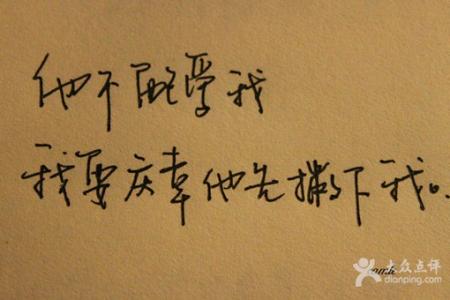 他不配爱我
我要庆幸他先撇下我。
大众点评
dianping.com